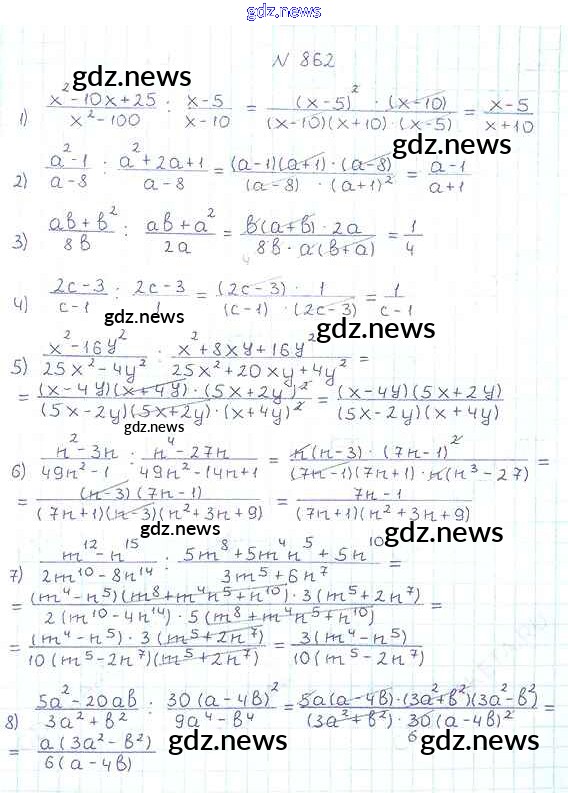 gdz.news
N 862
gdz.news
1) (x²-10x+25)/(x²-100) : (x-5)/(x-10) = ((x-5)²·(x-10))/((x-10)(x+10)·(x-5)) = (x-5)/(x+10)
gdz.news
2) (a²-1)/(a-8) : (a²+2a+1)/(a-8) = ((a-1)(a+1)·(a-8))/((a-8)·(a+1)²) = (a-1)/(a+1)
3) (ab+b²)/(8b) : (ab+a²)/(2a) = (b(a+b)·2a)/(8b·a(b+a)) = 1/4
4) (2c-3)/(c-1) : (2c-3)/1 = ((2c-3)·1)/((c-1)·(2c-3)) = 1/(c-1)
gdz.news
gdz.news
5) (x²-16y²)/(25x²-4y²) : (x²+8xy+16y²)/(25x²+20xy+4y²) =
= ((x-4y)(x+4y)·(5x+2y)²)/((5x-2y)(5x+2y)·(x+4y)²) = ((x-4y)(5x+2y))/((5x-2y)(x+4y))
gdz.news
6) (n²-3n)/(49n²-1) : (n⁴-27n)/(49n²-14n+1) = (n(n-3)·(7n-1)²)/((7n-1)(7n+1)·n(n³-27)) =
= ((n-3)(7n-1))/((7n+1)(n-3)(n²+3n+9)) = (7n-1)/((7n+1)(n²+3n+9))
gdz.news
gdz.news
7) (m¹²-n¹⁵)/(2m¹⁰-8n¹⁴) : (5m⁸+5m⁴n⁵+5n¹⁰)/(3m⁵+6n⁷) =
= ((m⁴-n⁵)(m⁸+m⁴n⁵+n¹⁰)·3(m⁵+2n⁷))/(2(m¹⁰-4n¹⁴)·5(m⁸+m⁴n⁵+n¹⁰)) =
= ((m⁴-n⁵)·3(m⁵+2n⁷))/(10(m⁵-2n⁷)(m⁵+2n⁷)) = (3(m⁴-n⁵))/(10(m⁵-2n⁷))
gdz.news
8) (5a²-20ab)/(3a²+b²) : (30(a-4b)²)/(9a⁴-b⁴) = (5a(a-4b)·(3a²+b²)(3a²-b²))/((3a²+b²)·30(a-4b)²) =
6
= (a(3a²-b²))/(6(a-4b))
gdz.news
gdz.news